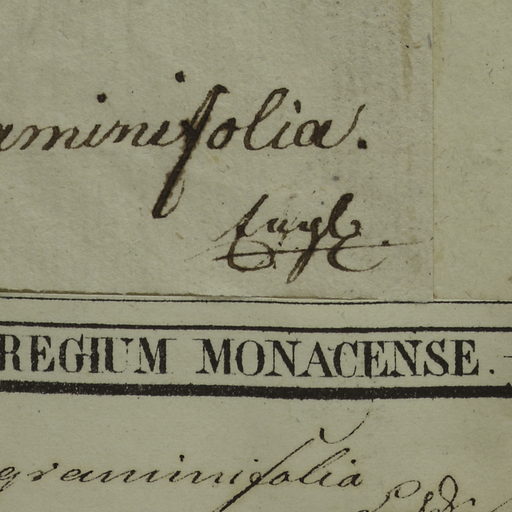 aminifolia.
REGIUM MONACENSE.
graminifolia